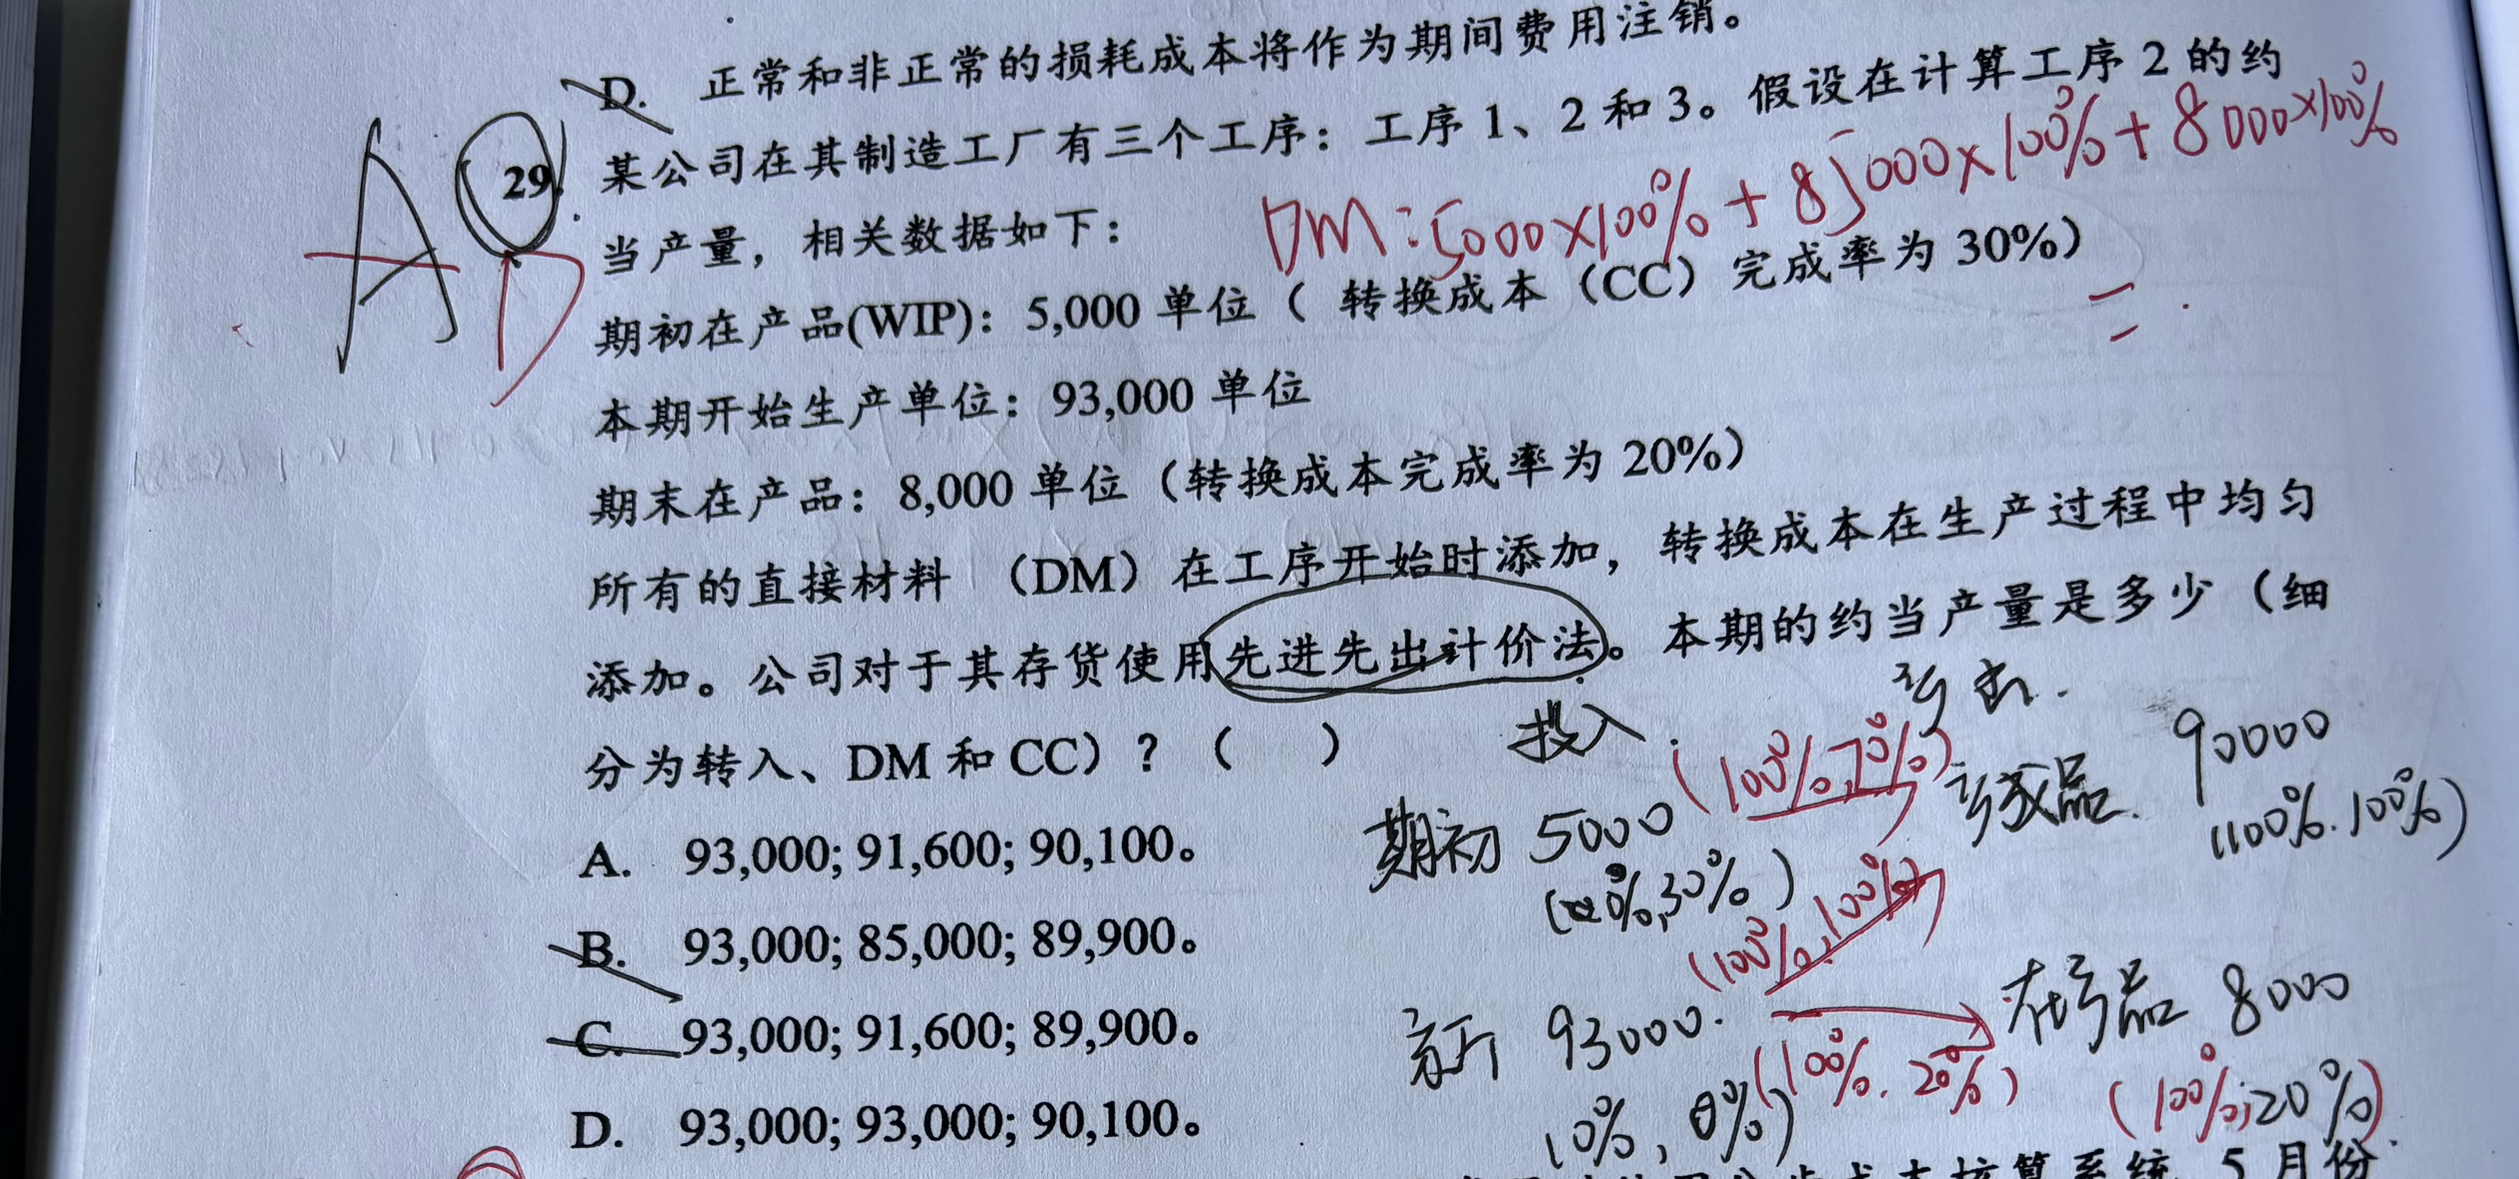 D. 正常和非正常的损耗成本将作为期间费用注销。
29. 某公司在其制造工厂有三个工序：工序 1、2 和 3。假设在计算工序 2 的约
当产量，相关数据如下：
DM：5000×100%+85000×100%+8000×100%
=
A
D
期初在产品(WIP)：5,000 单位（ 转换成本（CC）完成率为 30%）
本期开始生产单位：93,000 单位
期末在产品：8,000 单位（转换成本完成率为 20%）
所有的直接材料 （DM）在工序开始时添加，转换成本在生产过程中均匀
添加。公司对于其存货使用先进先出计价法。本期的约当产量是多少（细
分为转入、DM 和 CC）？（ ）
投入. 产出.
(100%,70%)
期初 5000 产成品. 90000
(0%,30%) (100%.100%)
(100%,100%)
新 93000. 在产品 8000
(100%.20%)
(0%,0%) (100%,20%)
A. 93,000; 91,600; 90,100。
B. 93,000; 85,000; 89,900。
C. 93,000; 91,600; 89,900。
D. 93,000; 93,000; 90,100。
5 月份